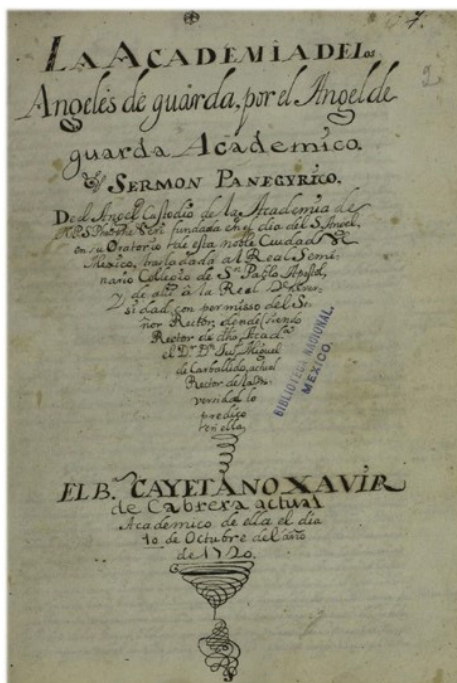 LA ACADEMIA DE Los
Angeles de guarda, por el Angel de
guarda Academico.
SERMON PANEGYRICO.
Del Angel Custodio de la Academia de
N.P.S. Phelipe Neri fundada en el dia del S. Angel,
en su Oratorio de esta noble Ciudad de
Mexico, trasladada al Real Semi-
nario Collegio de Sn. Pablo Apostol,
Y de alli â la Real Univer-
sidad, con permisso del Se-
ñor Rector, donde siendo
Rector de dha Acad.a
el Dr. Dn. Miguel
de Carballido, actual
Rector de la Uni-
versidad lo
predico
en ella,
EL B.r CAYETANO XAVIER
de Cabrera actual
Academico de ella el dia
10 de Octubre del año
de 1720.
BIBLIOTECA NACIONAL.
MEXICO.
2